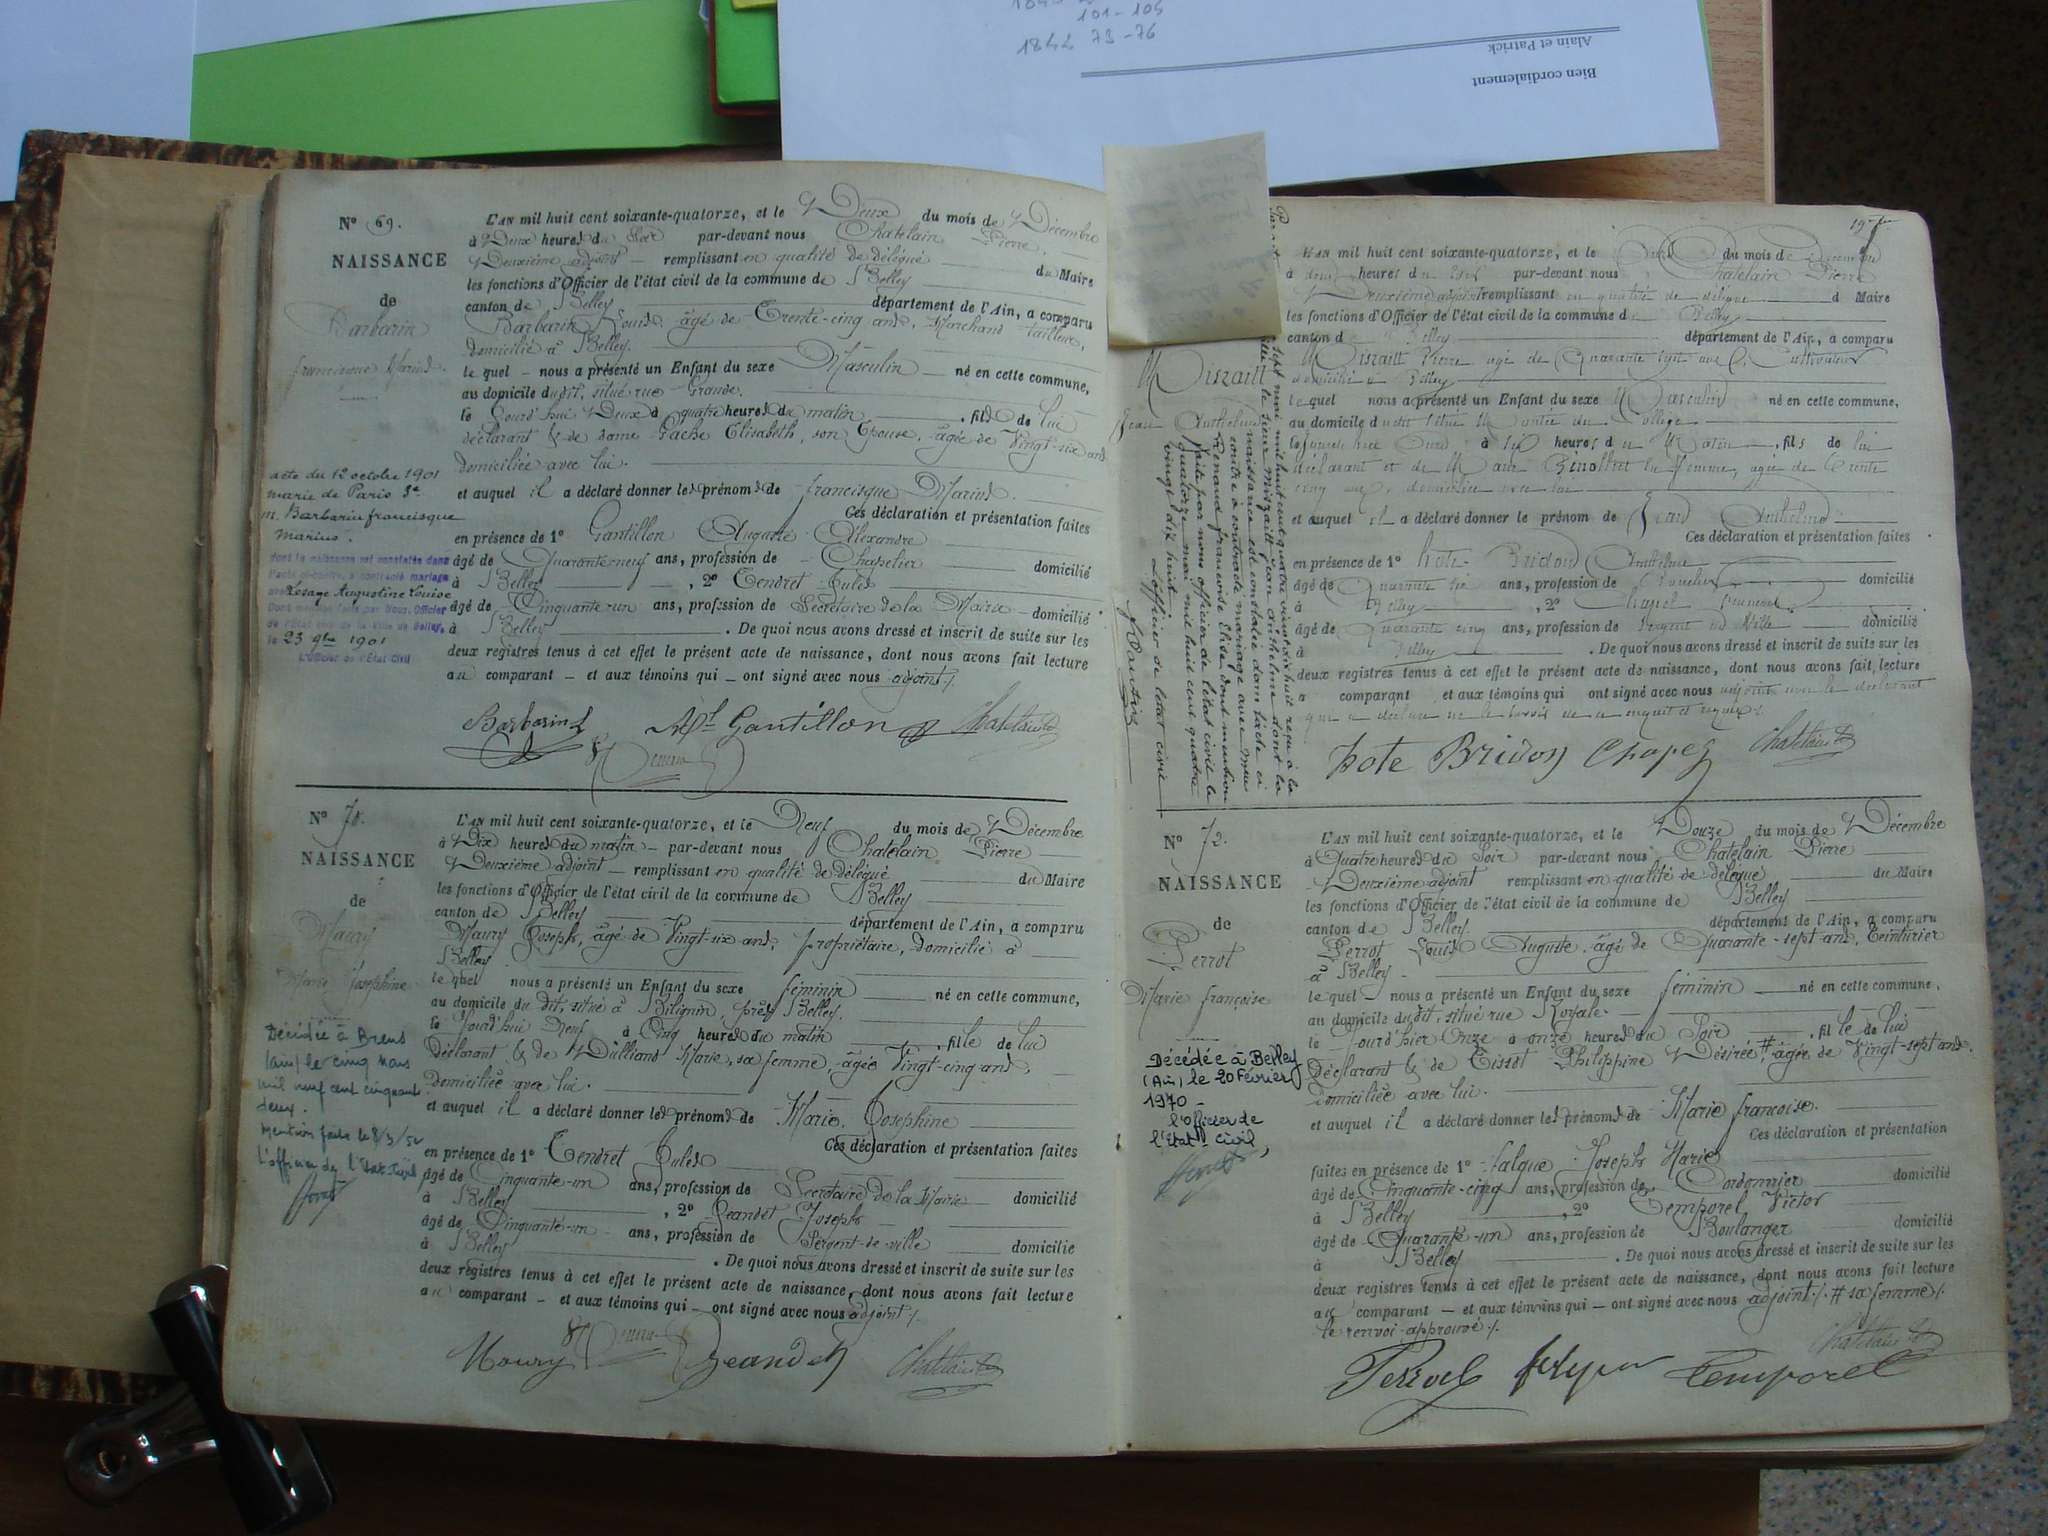 101-105
1842 73-76
Alain et Patrick
Bien cordialement
N° 69.
NAISSANCE
de
Barbarin
francisque Marius
acte du 12 octobre 1901
mairie de Paris
m. Barbarin francisque
Marius.
dont la naissance est constatée dans
l'acte ci-contre, a contracté mariage
avec Lesage Augustine Louise
Dont mention faite par Nous, Officier
de l'État civil de la Ville de Belley,
le 23 9bre 1901
L'Officier de l'État Civil
L'AN mil huit cent soixante-quatorze, et le Deux du mois de Décembre
à Deux heures du Soir par-devant nous Chatelain Pierre.
Deuxième adjoint remplissant en qualité de délégué du Maire
les fonctions d'Officier de l'état civil de la commune de Belley
canton de Belley département de l'Ain, a comparu
Barbarin Louis, âgé de Trente-cinq ans, Marchand tailleur,
domicilié à Belley.
le quel nous a présenté un Enfant du sexe Masculin né en cette commune,
au domicile du dit, situé rue Grande.
le jourd'hui Deux à quatre heures du matin, fils de lui
déclarant & de dame Gache Elisabeth, son Epouse, âgée de Vingt-six ans
domiciliée avec lui.
et auquel il a déclaré donner les prénoms de francisque Marius.
Ces déclaration et présentation faites
en présence de 1° Gantillon Auguste Alexandre
âgé de Quarante-neuf ans, profession de Chapelier domicilié
à Belley, 2° Tendret Jules
âgé de Cinquante-un ans, profession de Secrétaire de la Mairie domicilié
à Belley. De quoi nous avons dressé et inscrit de suite sur les
deux registres tenus à cet effet le présent acte de naissance, dont nous avons fait lecture
au comparant et aux témoins qui ont signé avec nous adjoint./.
Barbarin L Gantillon Chatelain
N° 70.
NAISSANCE
de
Maury
Marie Josephine
Décédée à Brens
(ain) le cinq mars
mil neuf cent cinquante
deux.
Mention faite le 8/3/52
L'officier de l'Etat Civil
L'AN mil huit cent soixante-quatorze, et le Neuf du mois de Décembre
à Dix heures du matin par-devant nous Chatelain Pierre
Deuxième adjoint remplissant en qualité de délégué du Maire
les fonctions d'Officier de l'état civil de la commune de Belley
canton de Belley département de l'Ain, a comparu
Maury Joseph, âgé de Vingt-six ans, propriétaire, domicilié à
Belley
le quel nous a présenté un Enfant du sexe féminin né en cette commune,
au domicile du dit, situé à Bilignin, près Belley.
le jourd'hui Neuf à Cinq heures du matin, fille de lui
déclarant & de Marie, sa femme, âgée Vingt-cinq ans,
domiciliée avec lui.
et auquel il a déclaré donner les prénoms de Marie Josephine
Ces déclaration et présentation faites
en présence de 1° Tendret Jules
âgé de Cinquante-un ans, profession de Secrétaire de la Mairie domicilié
à Belley, 2° Jeandet Joseph
âgé de Cinquante-un ans, profession de Sergent-de-ville domicilié
à Belley. De quoi nous avons dressé et inscrit de suite sur les
deux registres tenus à cet effet le présent acte de naissance, dont nous avons fait lecture
au comparant et aux témoins qui ont signé avec nous adjoint./.
Maury Jeandet Chatelain
Miszailt
Jean Anthelme
sept mai mil huit cent quatre vingt dix huit reçu à la
le sieur Miszailt Jean Anthelme dont la
naissance est constatée dans l'acte ci
contre a contracté mariage avec Mme
Renaud françoise Elisa, dont mention
faite par nous officier de l'état civil le
quatorze mai mil huit cent quatre
vingt dix huit
L'officier de l'état civil
L'AN mil huit cent soixante-quatorze, et le Onze du mois de Décembre
à deux heures du Soir par-devant nous Chatelain Pierre
Deuxième adjoint remplissant en qualité de délégué d Maire
les fonctions d'Officier de l'état civil de la commune d Belley
canton d Belley département de l'Ain, a comparu
Miszailt Pierre agé de Quarante sept ans, Cultivateur
domicilié à Belley
le quel nous a présenté un Enfant du sexe Masculin né en cette commune,
au domicile du dit situé Montée du Collège
le jourd'hui Onze à six heures du Matin, fils de lui
déclarant et de Marie sa femme, agée de Trente
cinq ans, domiciliée avec lui
et auquel il a déclaré donner le prénom de Jean Anthelme
Ces déclaration et présentation faites
en présence de 1° hote-Bridon Anthelme
âgé de Quarante ans, profession de domicilié
à Belley, 2° Chapel
âgé de Quarante cinq ans, profession de Sergent de Ville domicilié
à Belley. De quoi nous avons dressé et inscrit de suite sur les
deux registres tenus à cet effet le présent acte de naissance, dont nous avons fait lecture
a comparant et aux témoins qui ont signé avec nous adjoint non le déclarant
qui a déclaré ne le savoir de ce enquis et requis./.
hote Bridon Chapel Chatelain
N° 72.
NAISSANCE
de
Perrot
Marie françoise
Décédée à Belley
(Ain) le 20 Février
1970 -
l'officier de
l'état-civil,
L'AN mil huit cent soixante-quatorze, et le Douze du mois de Décembre
à Quatre heures du Soir par-devant nous Chatelain Pierre
Deuxième adjoint remplissant en qualité de délégué du Maire
les fonctions d'Officier de l'état civil de la commune de Belley
canton de Belley. département de l'Ain, a comparu
Perrot Louis Auguste, âgé de Quarante-sept ans, Teinturier
à Belley.
le quel nous a présenté un Enfant du sexe féminin né en cette commune,
au domicile du dit, situé rue Royale.
le jourd'hier Onze à onze heures du Soir, fille de lui
déclarant & de Tissot Philippine Désirée # âgée de Vingt-sept ans.
domiciliée avec lui.
et auquel il a déclaré donner les prénoms de Marie françoise.
Ces déclaration et présentation
faites en présence de 1° falque Joseph Marie
âgé de Cinquante-cinq ans, profession de Cordonnier domicilié
à Belley, 2° Temporel Victor
âgé de Quarante-un ans, profession de Boulanger domicilié
à Belley. De quoi nous avons dressé et inscrit de suite sur les
deux registres tenus à cet effet le présent acte de naissance, dont nous avons fait lecture
au comparant et aux témoins qui ont signé avec nous adjoint./. # sa femme./.
le renvoi approuvé./.
Chatelain
Perrot Temporel